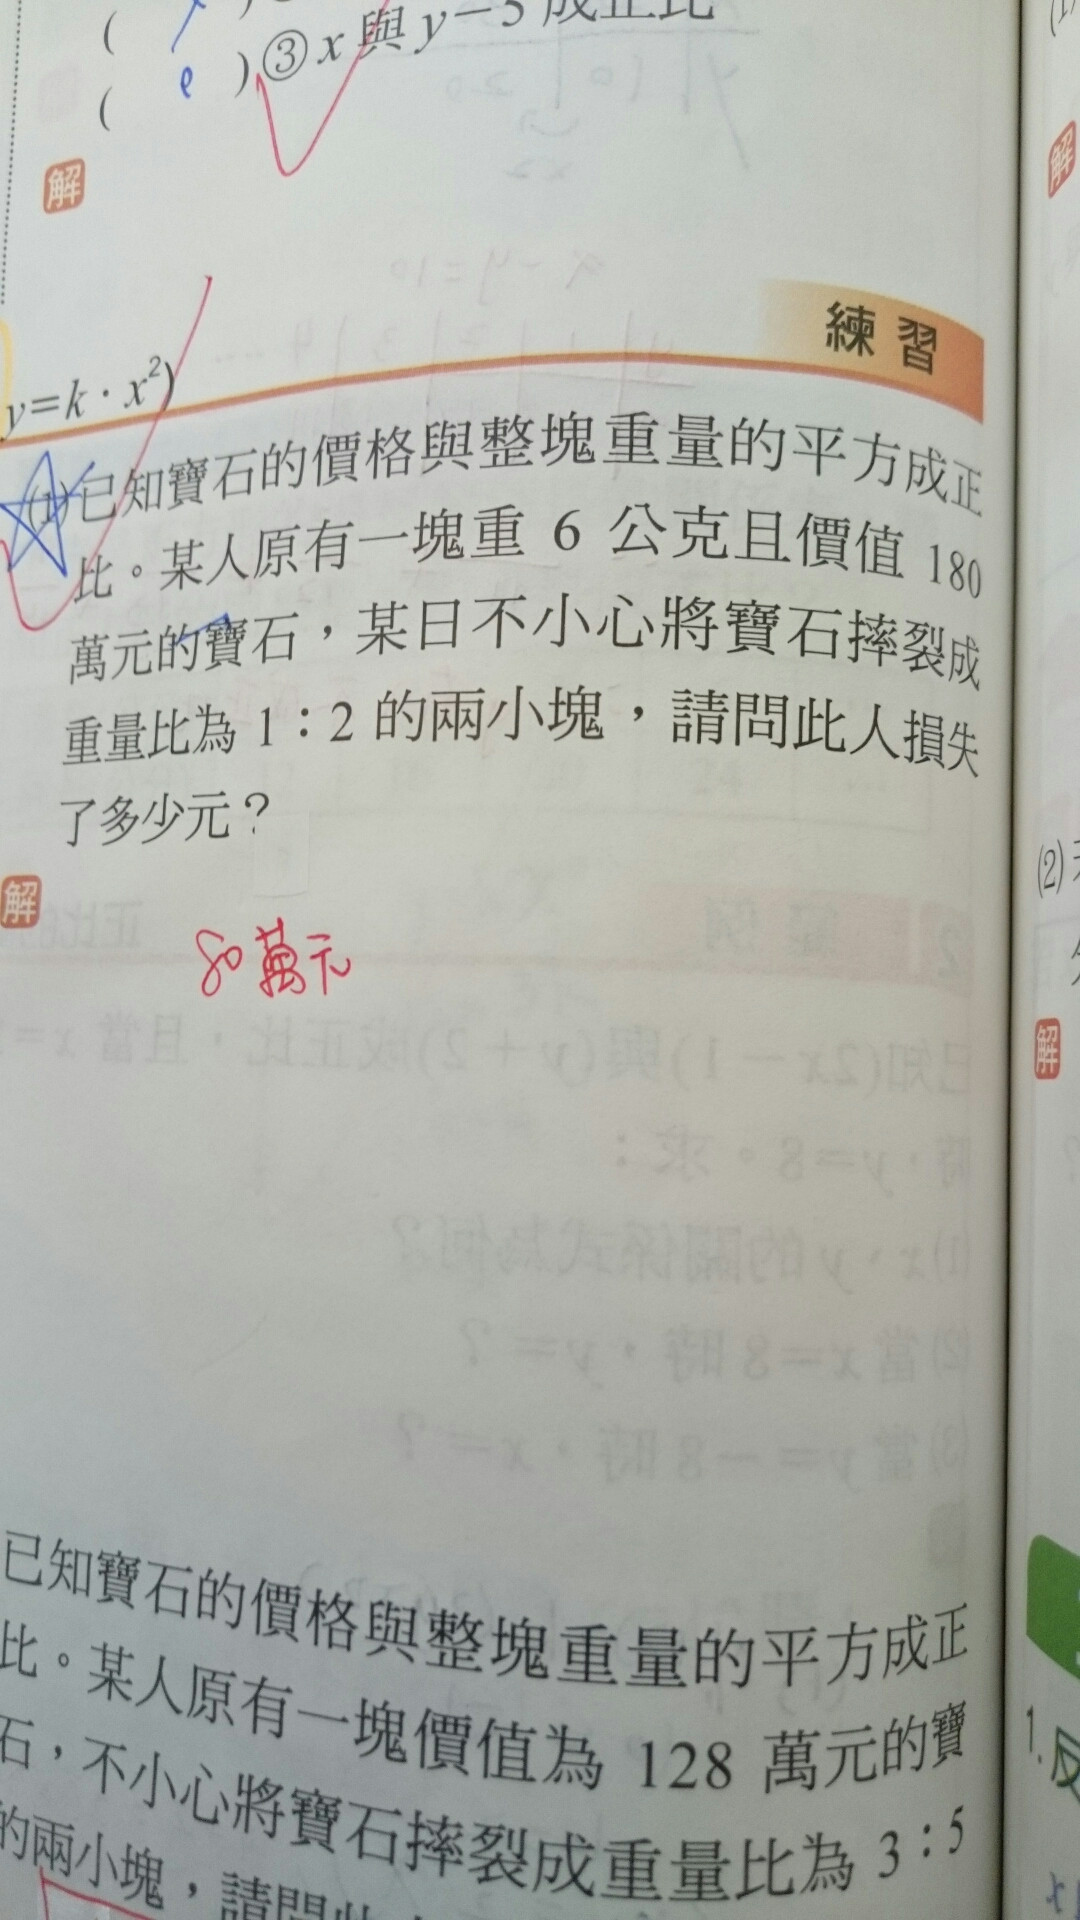 ( )
( e )③x與y－5成正比
解
練習
y=k·x²)
(1)已知寶石的價格與整塊重量的平方成正
比。某人原有一塊重 6 公克且價值 180
萬元的寶石，某日不小心將寶石摔裂成
重量比為 1：2 的兩小塊，請問此人損失
了多少元？
解
80萬元
已知寶石的價格與整塊重量的平方成正
比。某人原有一塊價值為 128 萬元的寶
石，不小心將寶石摔裂成重量比為 3：5
的兩小塊，請問此
解
(2)
解
1.反